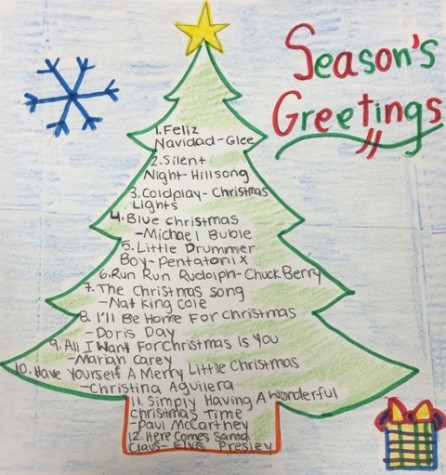 Season's
Greetings
1. Feliz
Navidad-Glee
2. Silent
Night-Hillsong
3. Coldplay-Christmas
Lights
4. Blue Christmas
-Michael Buble
5. Little Drummer
Boy-Pentatonix
6. Run Run Rudolph-Chuck Berry
7. The Christmas song
-Nat King Cole
8. I'll Be Home For Christmas
-Doris Day
9. All I Want For Christmas Is You
-Mariah Carey
10. Have Yourself A Merry Little Christmas
-Christina Aguilera
11. Simply Having A Wonderful
Christmas Time
-Paul McCartney
12. Here Comes Santa
Claus-Elvis Presley